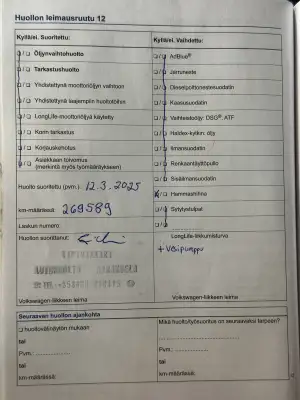 Huollon leimausruutu 12
Kyllä/ei. Suoritettu:
Kyllä/ei. Vaihdettu:
Öljynvaihtohuolto
Tarkastushuolto
Yhdistettynä moottoriöljyn vaihtoon
Yhdistettynä laajempiin huoltotöihin
LongLife-moottoriöljyä käytetty
Korin tarkastus
Korjauskehotus
Asiakkaan toivomus
(merkintä myös työmääräykseen)
Huolto suoritettu (pvm.) 12.3.2025
km-määrässä: 269589
Laskun numero:
Huollon suorittanut:
Volkswagen-liikkeen leima
AdBlue®
Jarruneste
Dieselpolttonestesuodatin
Kaasusuodatin
Vaihteistoöljy: DSG®, ATF
Haldex-kytkin: öljy
Ilmansuodatin
Renkaantäyttöpullo
Sisäilmansuodatin
Hammashihna
Sytytystulpat
LongLife-liikkumisturva
+ Vesipumppu
Volkswagen-liikkeen leima
Seuraavan huollon ajankohta
huoltovälinäytön mukaan
tai
Pvm.:
tai
km-määrässä:
Mikä huoltotyösuoritus on seuraavaksi tarpeen?
tai
Pvm.:
tai
km-määrässä: